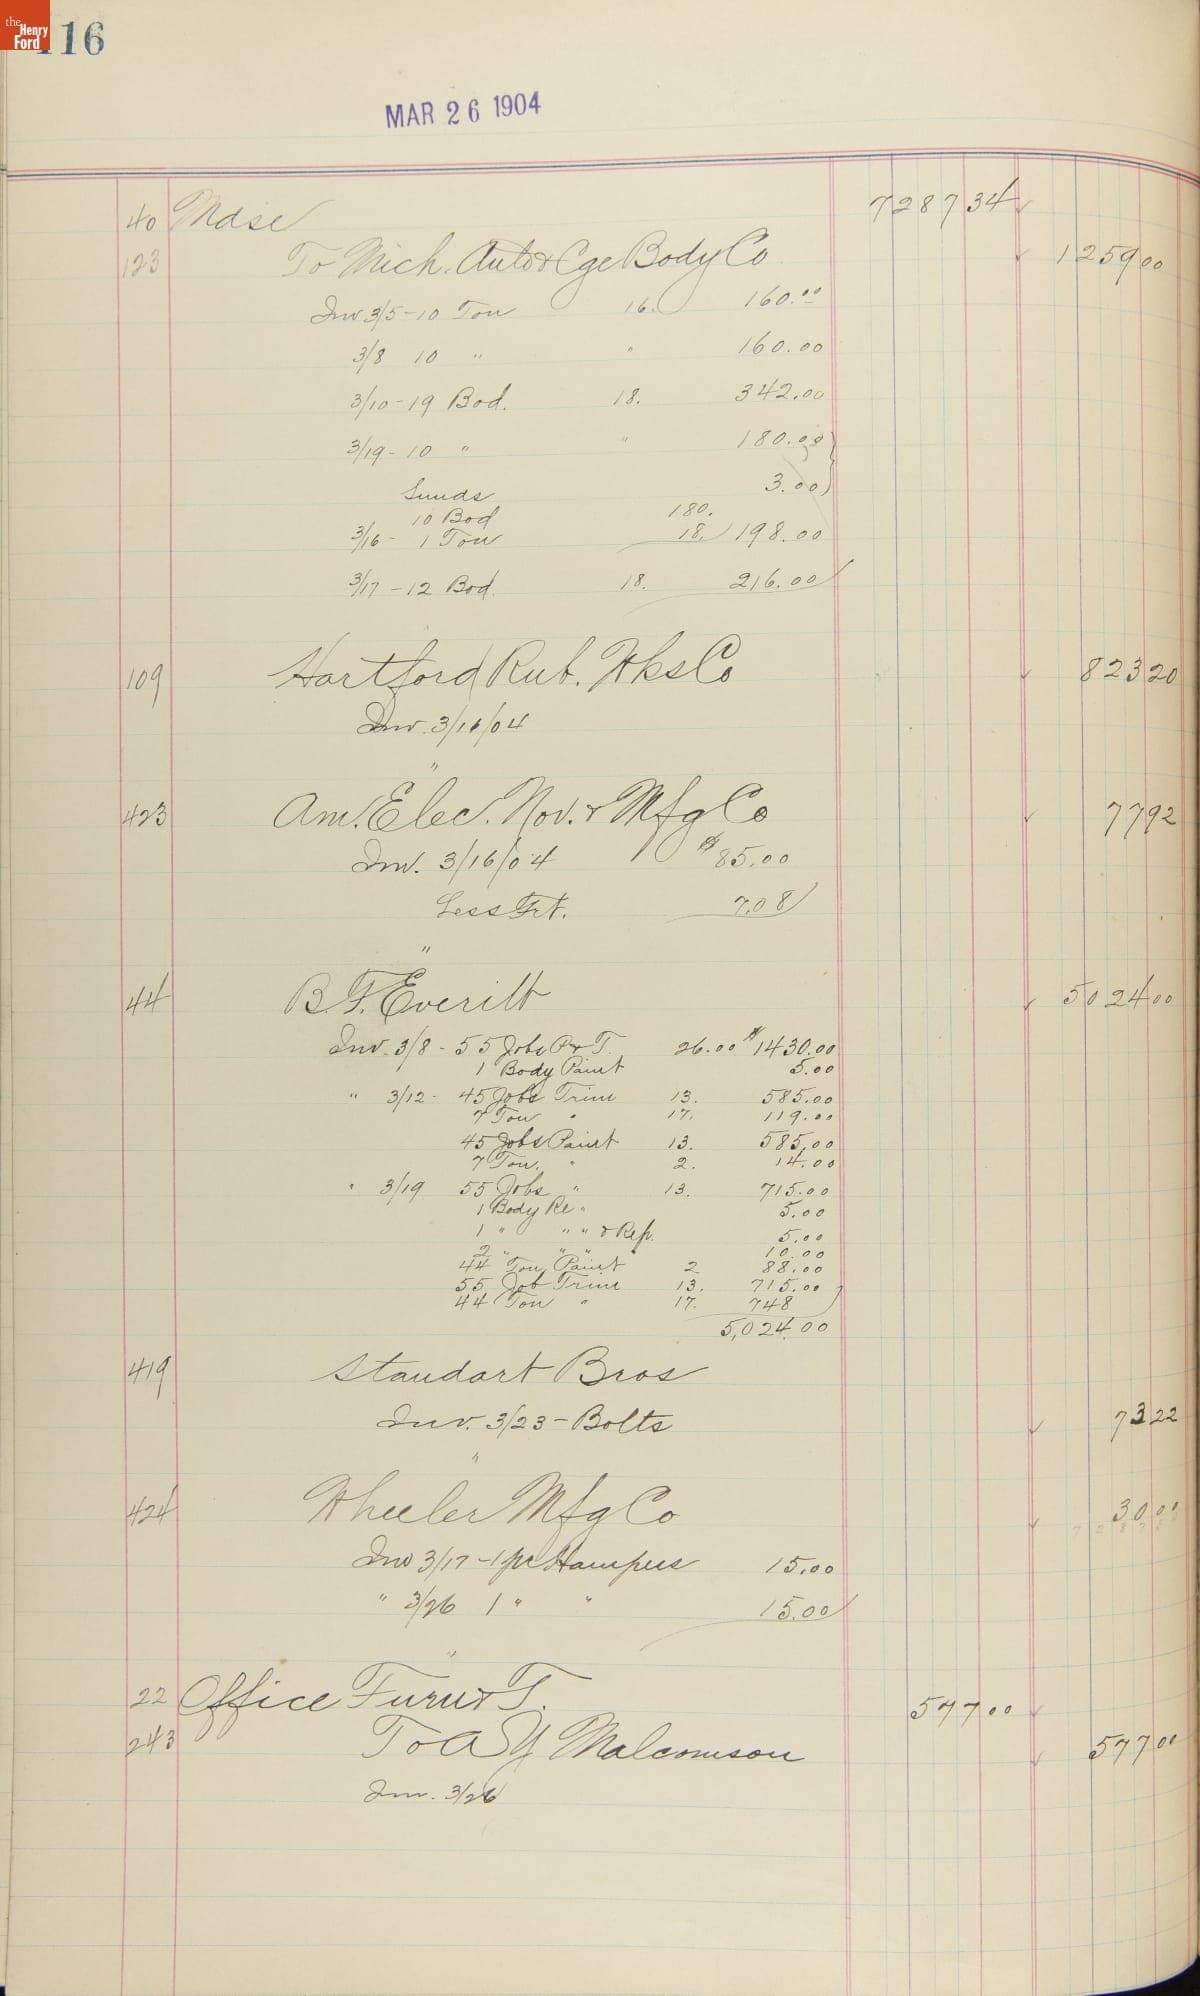 the Henry Ford
116
MAR 26 1904
40 Mdse 7287 34
123 To Mich. Auto & Cge Body Co 1259 00
Inv 3/5 - 10 Ton 16. 160.00
3/8 10 " " 160.00
3/10 - 19 Bod. 18. 342.00
3/19 - 10 " " 180.00
Sunds 3.00
10 Bod 180.
3/16 - 1 Ton 18. 198.00
3/17 - 12 Bod. 18. 216.00
109 Hartford Rub. Wks Co 823 20
Inv. 3/16/04
"
423 Am. Elec. Nov. & Mfg Co 77 92
Inv. 3/16/04 $85.00
Less Frt. 7.08
"
44 B. F. Everitt 5024 00
Inv. 3/8 - 55 Jobs P & T. 26.00 $1430.00
1 Body Paint 5.00
" 3/12 - 45 Jobs Trim 13. 585.00
7 Ton " 17. 119.00
45 Jobs Paint 13. 585.00
7 Ton. " 2. 14.00
" 3/19 55 Jobs " 13. 715.00
1 Body Re " 5.00
1 " " " & Rep. 5.00
2 " " " 10.00
44 Ton Paint 2 88.00
55 Job Trim 13. 715.00
44 Ton " 17. 748
5,024.00
419 Standart Bros
Inv. 3/23 - Bolts 73 22
"
424 Wheeler Mfg Co 30 00
Inv 3/17 - 1 pr Hampers 15.00
" 3/26 1 " " 15.00
"
22 Office Furn & T. 577 00
243 To A Y Malcomson 577 00
Inv. 3/26